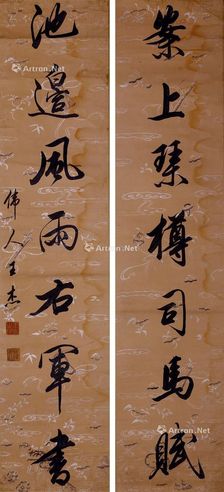 案上琴樽司馬賦
池邊風雨右軍書
偉人王杰
Artron.Net
Artron.Net
Artron.Net
Artron.Net